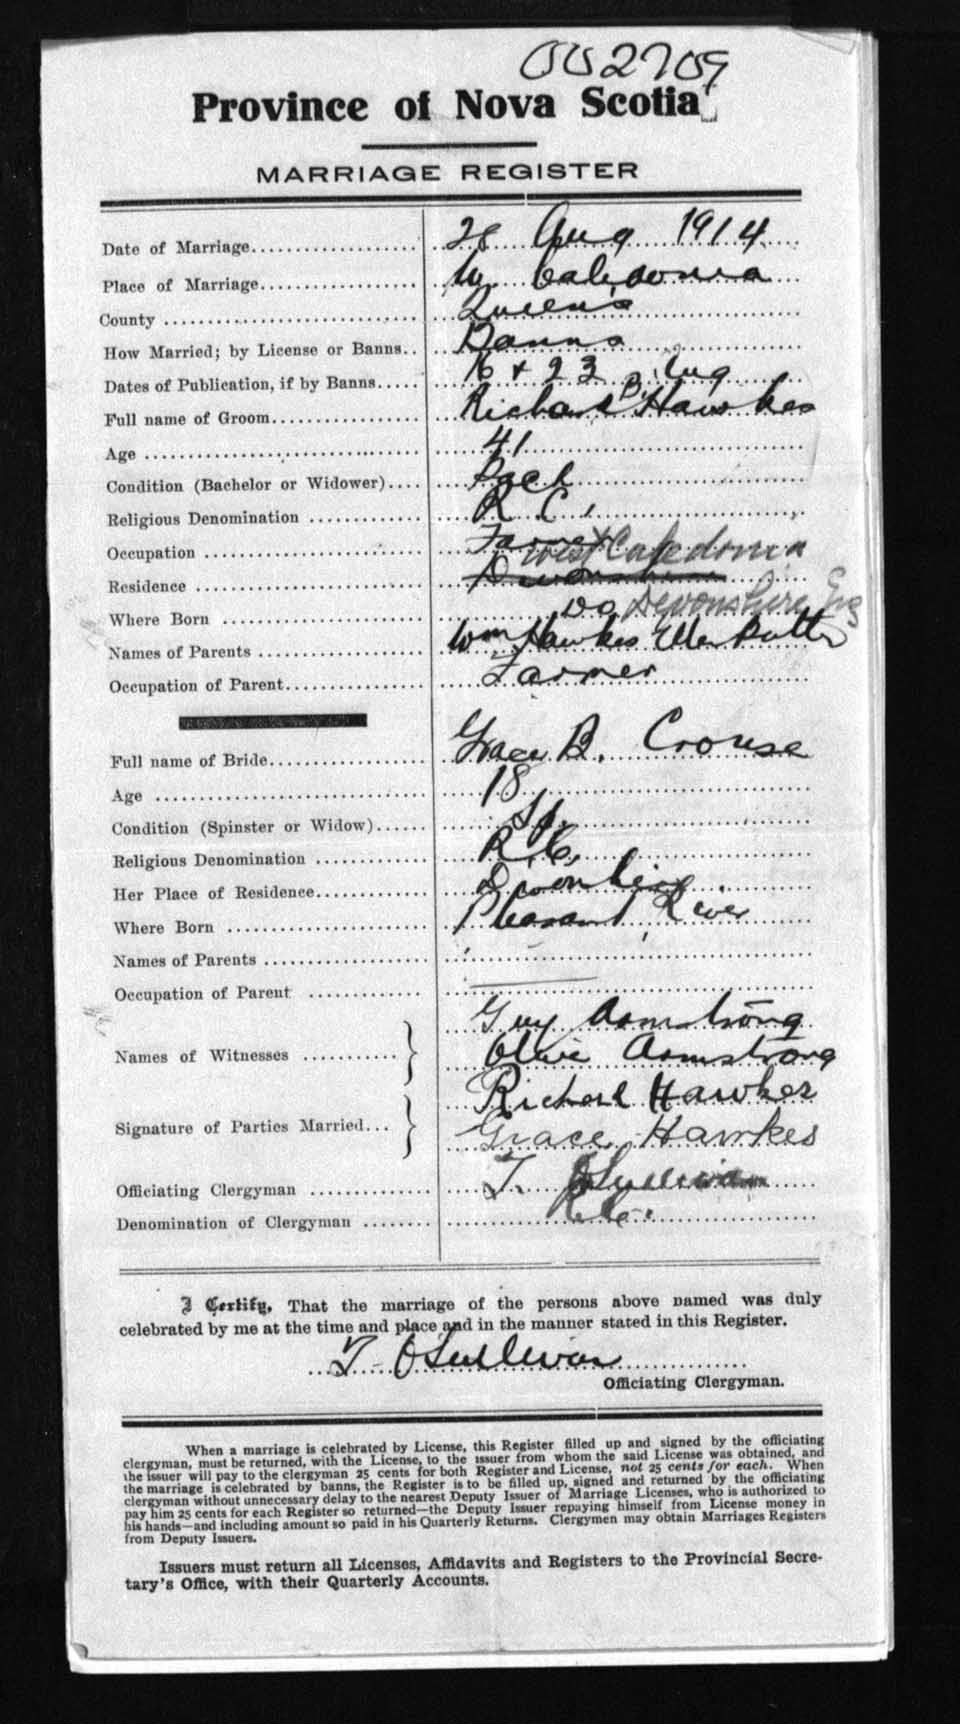 002709
Province of Nova Scotia
MARRIAGE REGISTER
Date of Marriage 28 Aug 1914
Place of Marriage W. Caledonia
County Queen's
How Married; by License or Banns Banns
Dates of Publication, if by Banns 16 & 23 Aug
Full name of Groom Richard B. Hawkes
Age 41
Condition (Bachelor or Widower) Bach
Religious Denomination R C.
Occupation Farmer
Residence Devonshire West Caledonia
Where Born Do Devonshire Eng
Names of Parents Wm Hawkes Ellen
Occupation of Parent Farmer
Full name of Bride Grace B. Crouse
Age 18
Condition (Spinster or Widow) Sp.
Religious Denomination R.C.
Her Place of Residence Devonshire
Where Born Pleasant River
Names of Parents
Occupation of Parent
Names of Witnesses Guy Armstrong
Olive Armstrong
Signature of Parties Married Richard Hawkes
Grace Hawkes
Officiating Clergyman T. O'Sullivan
Denomination of Clergyman R.C.
I Certify, That the marriage of the persons above named was duly
celebrated by me at the time and place and in the manner stated in this Register.
T. O'Sullivan
Officiating Clergyman.
When a marriage is celebrated by License, this Register filled up and signed by the officiating
clergyman, must be returned, with the License, to the issuer from whom the said License was obtained, and
the issuer will pay to the clergyman 25 cents for both Register and License, not 25 cents for each. When
the marriage is celebrated by banns, the Register is to be filled up, signed and returned by the officiating
clergyman without unnecessary delay to the nearest Deputy Issuer of Marriage Licenses, who is authorized to
pay him 25 cents for each Register so returned—the Deputy Issuer repaying himself from License money in
his hands—and including amount so paid in his Quarterly Returns. Clergymen may obtain Marriages Registers
from Deputy Issuers.
Issuers must return all Licenses, Affidavits and Registers to the Provincial Secre-
tary's Office, with their Quarterly Accounts.